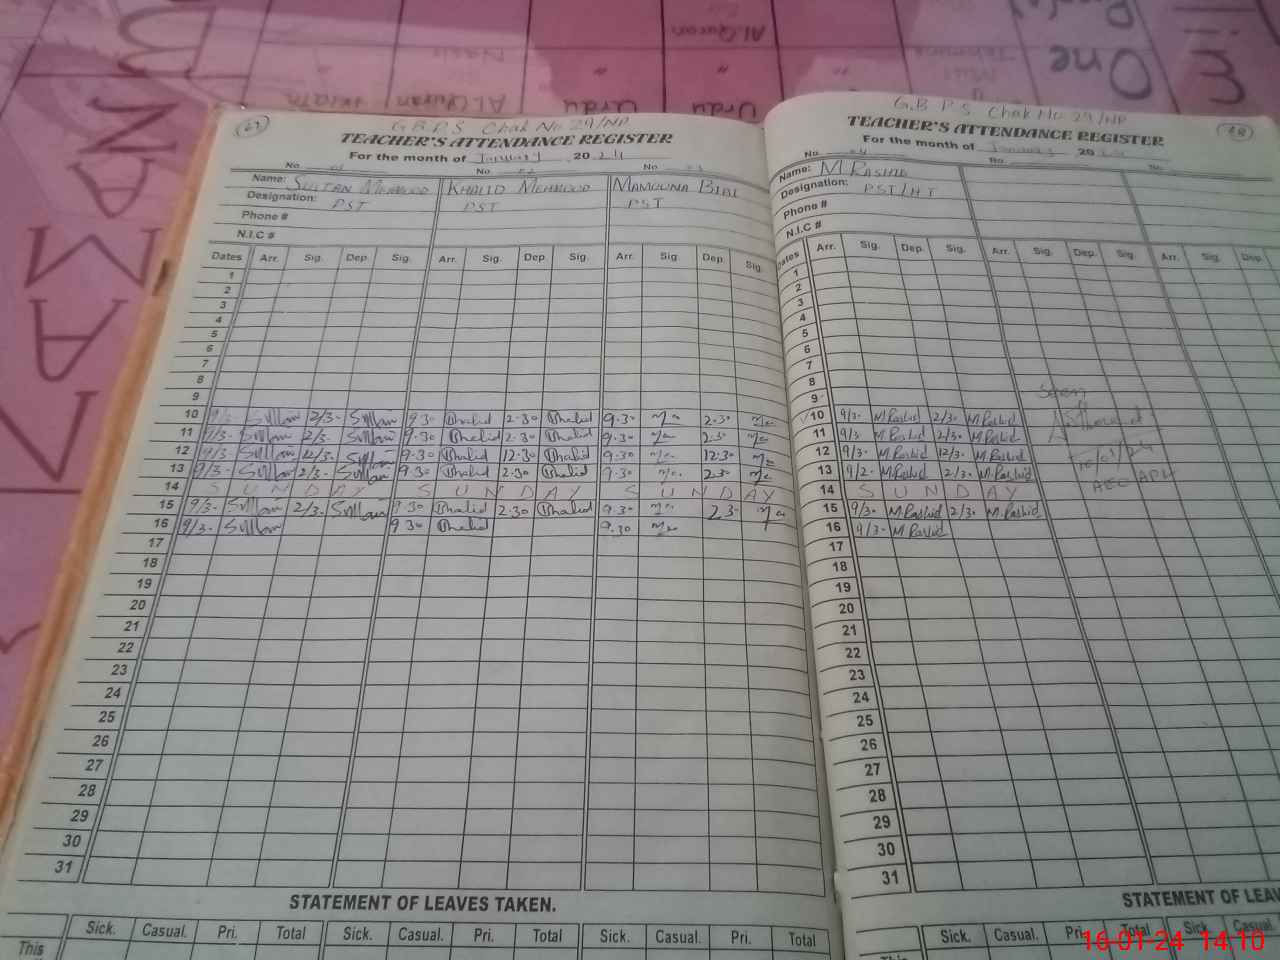 67
G.B.P.S Chak No 29/NP
TEACHER'S ATTENDANCE REGISTER
For the month of January 2024
No. 01 No. 02 No. 03
Name: SULTAN MEHMOOD KHALID MEHMOOD MAMOUNA BIBI
Designation: PST PST PST
Phone #
N.I.C #
Dates Arr. Sig. Dep. Sig. Arr. Sig. Dep. Sig. Arr. Sig. Dep. Sig.
1
2
3
4
5
6
7
8
9
10 9/3- Sultan 2/3- Sultan 9.30 Khalid 2.30 Khalid 9.30 2.30
11 9/3- Sultan 2/3- Sultan 9.30 Khalid 2.30 Khalid 9.30 2.30
12 9/3- Sultan 12/3- Sultan 9.30 Khalid 12.30 Khalid 9.30 12.30
13 9/3- Sultan 2/3- Sultan 9.30 Khalid 2.30 Khalid 9.30 2.30
14 SUNDAY SUNDAY SUNDAY
15 9/3- Sultan 2/3- Sultan 9.30 Khalid 2.30 Khalid 9.30 2.3
16 9/3- Sultan 9.30 Khalid 9.30
17
18
19
20
21
22
23
24
25
26
27
28
29
30
31
STATEMENT OF LEAVES TAKEN.
Sick. Casual. Pri. Total Sick. Casual. Pri. Total Sick. Casual. Pri. Total
This
68
G.B.P.S Chak No 29/NP
TEACHER'S ATTENDANCE REGISTER
For the month of January 2024
No. 04 No. No.
Name: M RASHID
Designation: PST/HT
Phone #
N.I.C #
Dates Arr. Sig. Dep. Sig. Arr. Sig. Dep. Sig. Arr. Sig. Dep.
1
2
3
4
5
6
7
8
9
10 9/3- M Rashid 2/3- M Rashid
11 9/3- M Rashid 2/3- M Rashid
12 9/3- M Rashid 12/3- M Rashid
13 9/2- M Rashid 2/3- M Rashid
14 SUNDAY
15 9/30 M Rashid 2/3- M Rashid
16 9/3- M Rashid
17
18
19
20
21
22
23
24
25
26
27
28
29
30
31
Seen
10/01/24
AEO APH
STATEMENT OF LEAV
Sick. Casual. Pri. Total Sick. Casual.
16-01-24 14:10